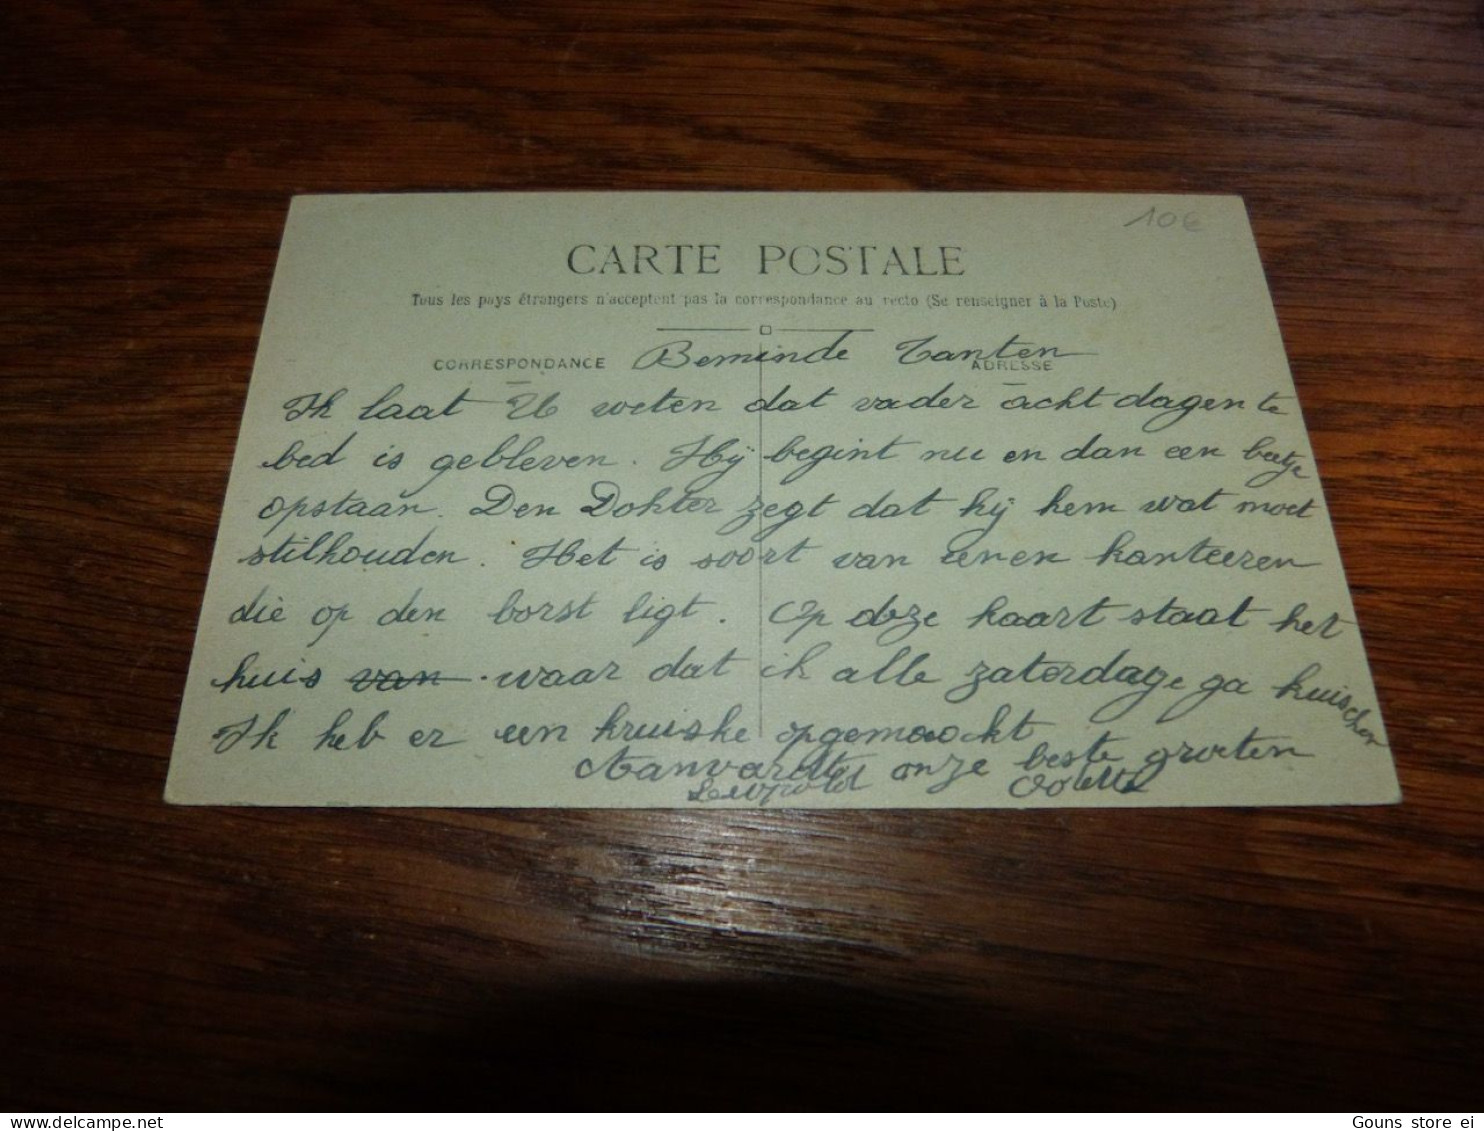 10€
CARTE POSTALE
Tous les pays étrangers n'acceptent pas la correspondance au recto (Se renseigner à la Poste)
CORRESPONDANCE
ADRESSE
Beminde Tanten
Ik laat U weten dat vader acht dagen te
bed is gebleven. Hij begint nu en dan een beetje
opstaan. Den Dokter zegt dat hij hem wat moet
stilhouden. Het is soort van eenen kanteeren
die op den borst ligt. Op deze kaart staat het
huis van waar dat ik alle zaterdage ga kuischen
Ik heb er een kruiske opgemaackt
Aanvardt onze beste groeten
Leopold
Gouns store ei